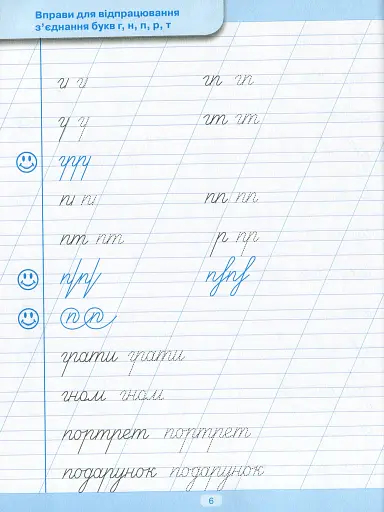 Вправи для відпрацювання
з'єднання букв г, н, п, р, т
ги ги гп гп
гу гу гт гт
пи пи пп пп
пт пт р пр
грати грати
гном гном
портрет портрет
подарунок подарунок
6